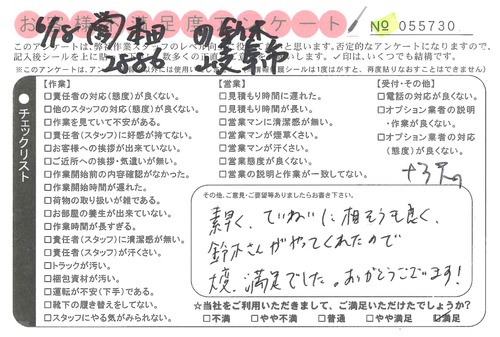 お 様 満足度アンケート
№ 055730
6/18
鈴木
このアンケートは、弊社作業スタッフのレベル向 に役 と思います。否定的なアンケートになりますので、
記入後シールを上に貼 数多くの正直な します。✓印は、いくつでも結構です。
チェックリスト
【作業】
□責任者の対応(態度)が良くない。
□他のスタッフの対応(態度)が良くない。
□作業を見ていて不安がある。
□責任者(スタッフ)に好感が持てない。
□お客様への挨拶が出来ていない。
□ご近所への挨拶・気遣いが無い。
□作業開始前の内容確認がなかった。
□作業開始時間が遅れた。
□荷物の取り扱いが雑である。
□お部屋の養生が出来ていない。
□作業時間が長すぎる。
□責任者(スタッフ)に清潔感が無い。
□責任者(スタッフ)が汗くさい。
□トラックが汚い。
□梱包資材が汚い。
□運転が不安(下手)である。
□靴下の履き替えをしてない。
□スタッフにやる気がみられない。
【営業】
□見積もり時間に遅れた。
□見積もり時間が長い。
□営業マンに清潔感が無い。
□営業マンが煙草くさい。
□営業マンが汗くさい。
□営業態度が良くない。
□営業の説明と作業が一致してない。
【受付・その他】
□電話の対応が良くない。
□オプション業者の説明
・作業が良くない。
□オプション業者の対応
(態度)が良くない。
その他、ご意見・ご要望等ありましたらお書き下さい。
素早く、ていねいに相そうも良く、
鈴木さんがやってくれたので
大変、満足でした。ありがとうございます!
☆当社をご利用いただきまして、ご満足いただけたでしょうか?
□不満 □やや不満 □普通 □やや満足 ☑満足